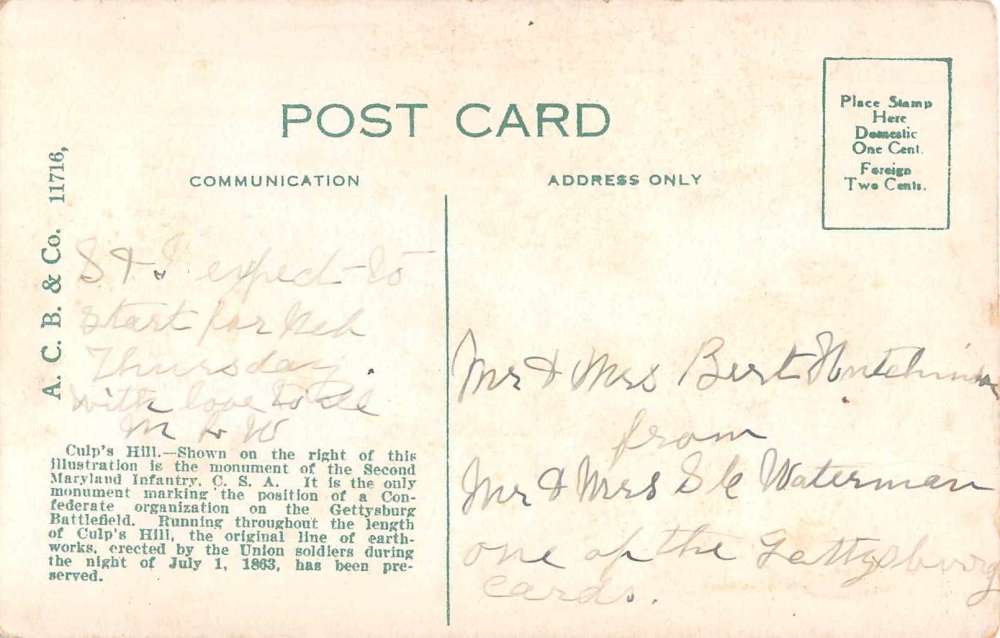 POST CARD
COMMUNICATION
ADDRESS ONLY
Place Stamp
Here
Domestic
One Cent.
Foreign
Two Cents.
A. C. B. & Co. 11716,
S & I expect to
start for Neb
Thursday.
with love to all
M L W
Culp's Hill.—Shown on the right of this
illustration is the monument of the Second
Maryland Infantry, C. S. A. It is the only
monument marking the position of a Con-
federate organization on the Gettysburg
Battlefield. Running throughout the length
of Culp's Hill, the original line of earth-
works, erected by the Union soldiers during
the night of July 1, 1863, has been pre-
served.
Mr & Mrs Bert Hutchins
from
Mr & Mrs S Waterman
one of the Gettysburg
cards.